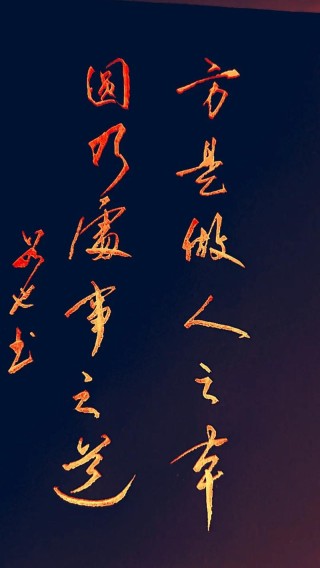 方是做人之本
圆乃處事之道